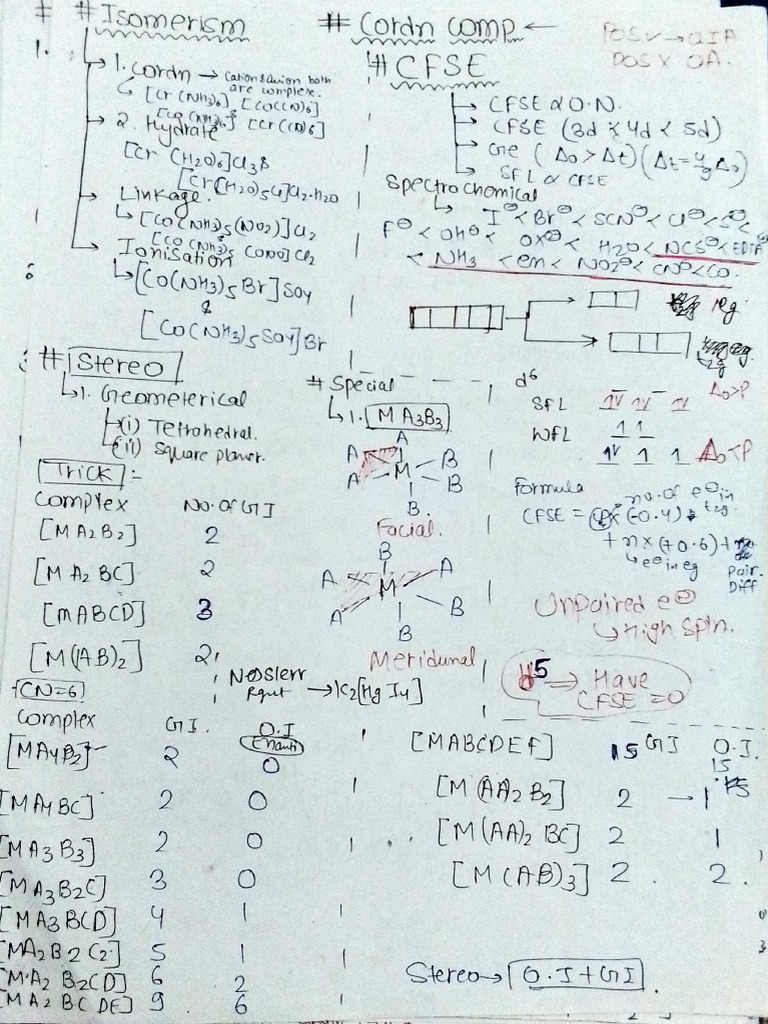 # Isomerism
1.
1. Cordn → Cation & anion both are complex.
[Cr(NH3)6] [Co(CN)6]
[Co(NH3)6] [Cr(CN)6]
2. Hydrate
[Cr(H2O)6]Cl3 &
[Cr(H2O)5Cl]Cl2.H2O
Linkage
[Co(NH3)5(NO2)]Cl2
[Co(NH3)5(ONO)]Cl2
Ionisation
[Co(NH3)5Br]SO4
&
[Co(NH3)5SO4]Br
# Cordn comp ←
POS ✓ → OIA
POS X OA.
# CFSE
CFSE ∝ O.N.
CFSE (3d < 4d < 5d)
Ge (Δo > Δt) (Δt = 4/9 Δo)
SFL ∝ CFSE
Spectrochemical
I⊖ < Br⊖ < SCN⊖ < Cl⊖ < S⊖ <
F⊖ < OH⊖ < OX⊖ < H2O < NCS⊖ < EDTA
< NH3 < en < NO2⊖ < CN⊖ < CO.
eg
t2g
# Stereo
1. Geometerical
(i) Tetrohedral.
(ii) Square planer.
Trick :-
Complex No. of GI
[MA2B2] 2
[MA2BC] 2
[MABCD] 3
[M(AB)2] 2
# Special
1. MA3B3
A
A M B
A B
B
Facial.
B
A M A
A B
B
Meridunal
Nesslerr
Rgnt → K2[HgI4]
d6
SFL 1V 1V 1V Δo>P
WFL 1 1
1V 1 1 Δo<P
Formula no. of e⊖ in t2g
CFSE = x (-0.4) +
+ n x (+0.6) +
e⊖ in eg Pair. Diff
Unpaired e⊖
→ High spin.
d5 → Have
CFSE = 0
(CN=6)
Complex GI. O.I
(Enanti)
[MA4B2] 2 0
[MA4BC] 2 0
[MA3B3] 2 0
[MA3B2C] 3 0
[MA3BCD] 4 1
[MA2B2C2] 5 1
[MA2B2CD] 6 2
[MA2BCDE] 9 6
GI O.I.
[MABCDEF] 15 15
[M(AA2B2] 2 → 1
[M(AA)2BC] 2 1
[M(AB)3] 2. 2.
Stereo → O.I + GI